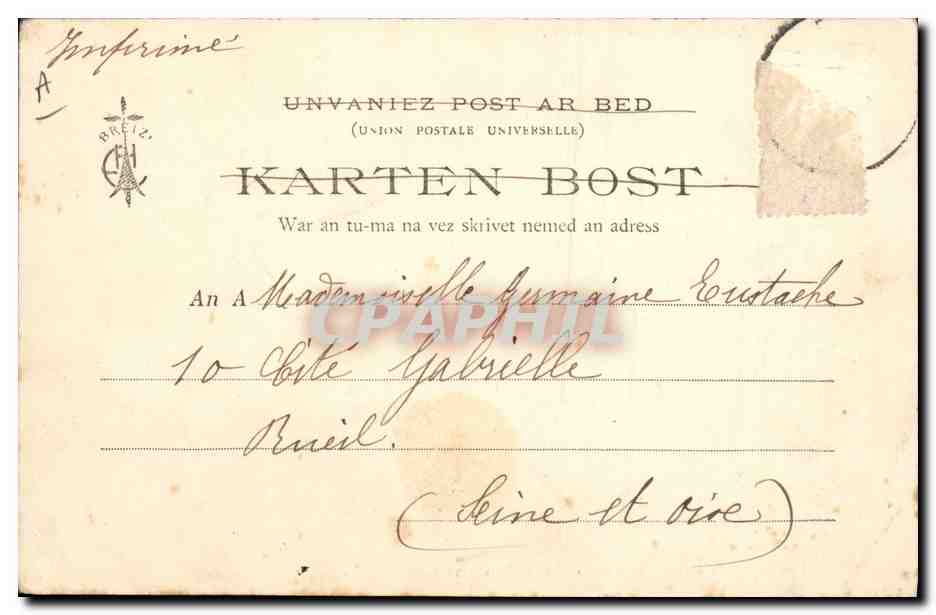 Imprimé
A
BREIZ'
UNVANIEZ POST AR BED
(UNION POSTALE UNIVERSELLE)
KARTEN BOST
War an tu-ma na vez skrivet nemed an adress
An A Mademoiselle Germaine Eustache
10 Cité Gabrielle
Rueil.
(Seine et Oise)
CPAPHIL